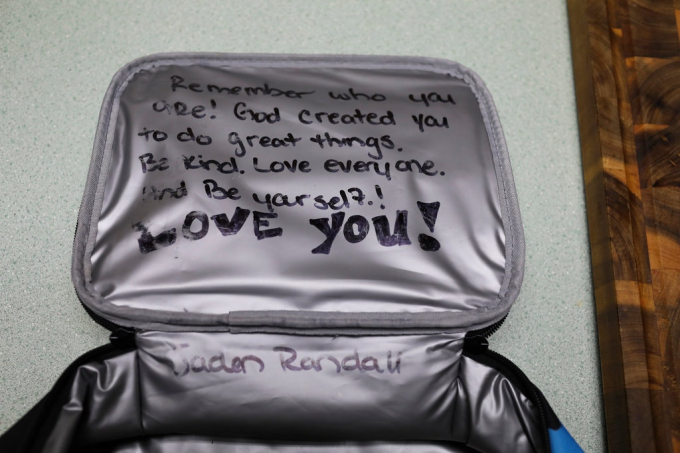 Remember who you
are! God created you
to do great things.
Be kind. Love everyone.
And Be yourself.!
LOVE YOU!
Jaden Randall